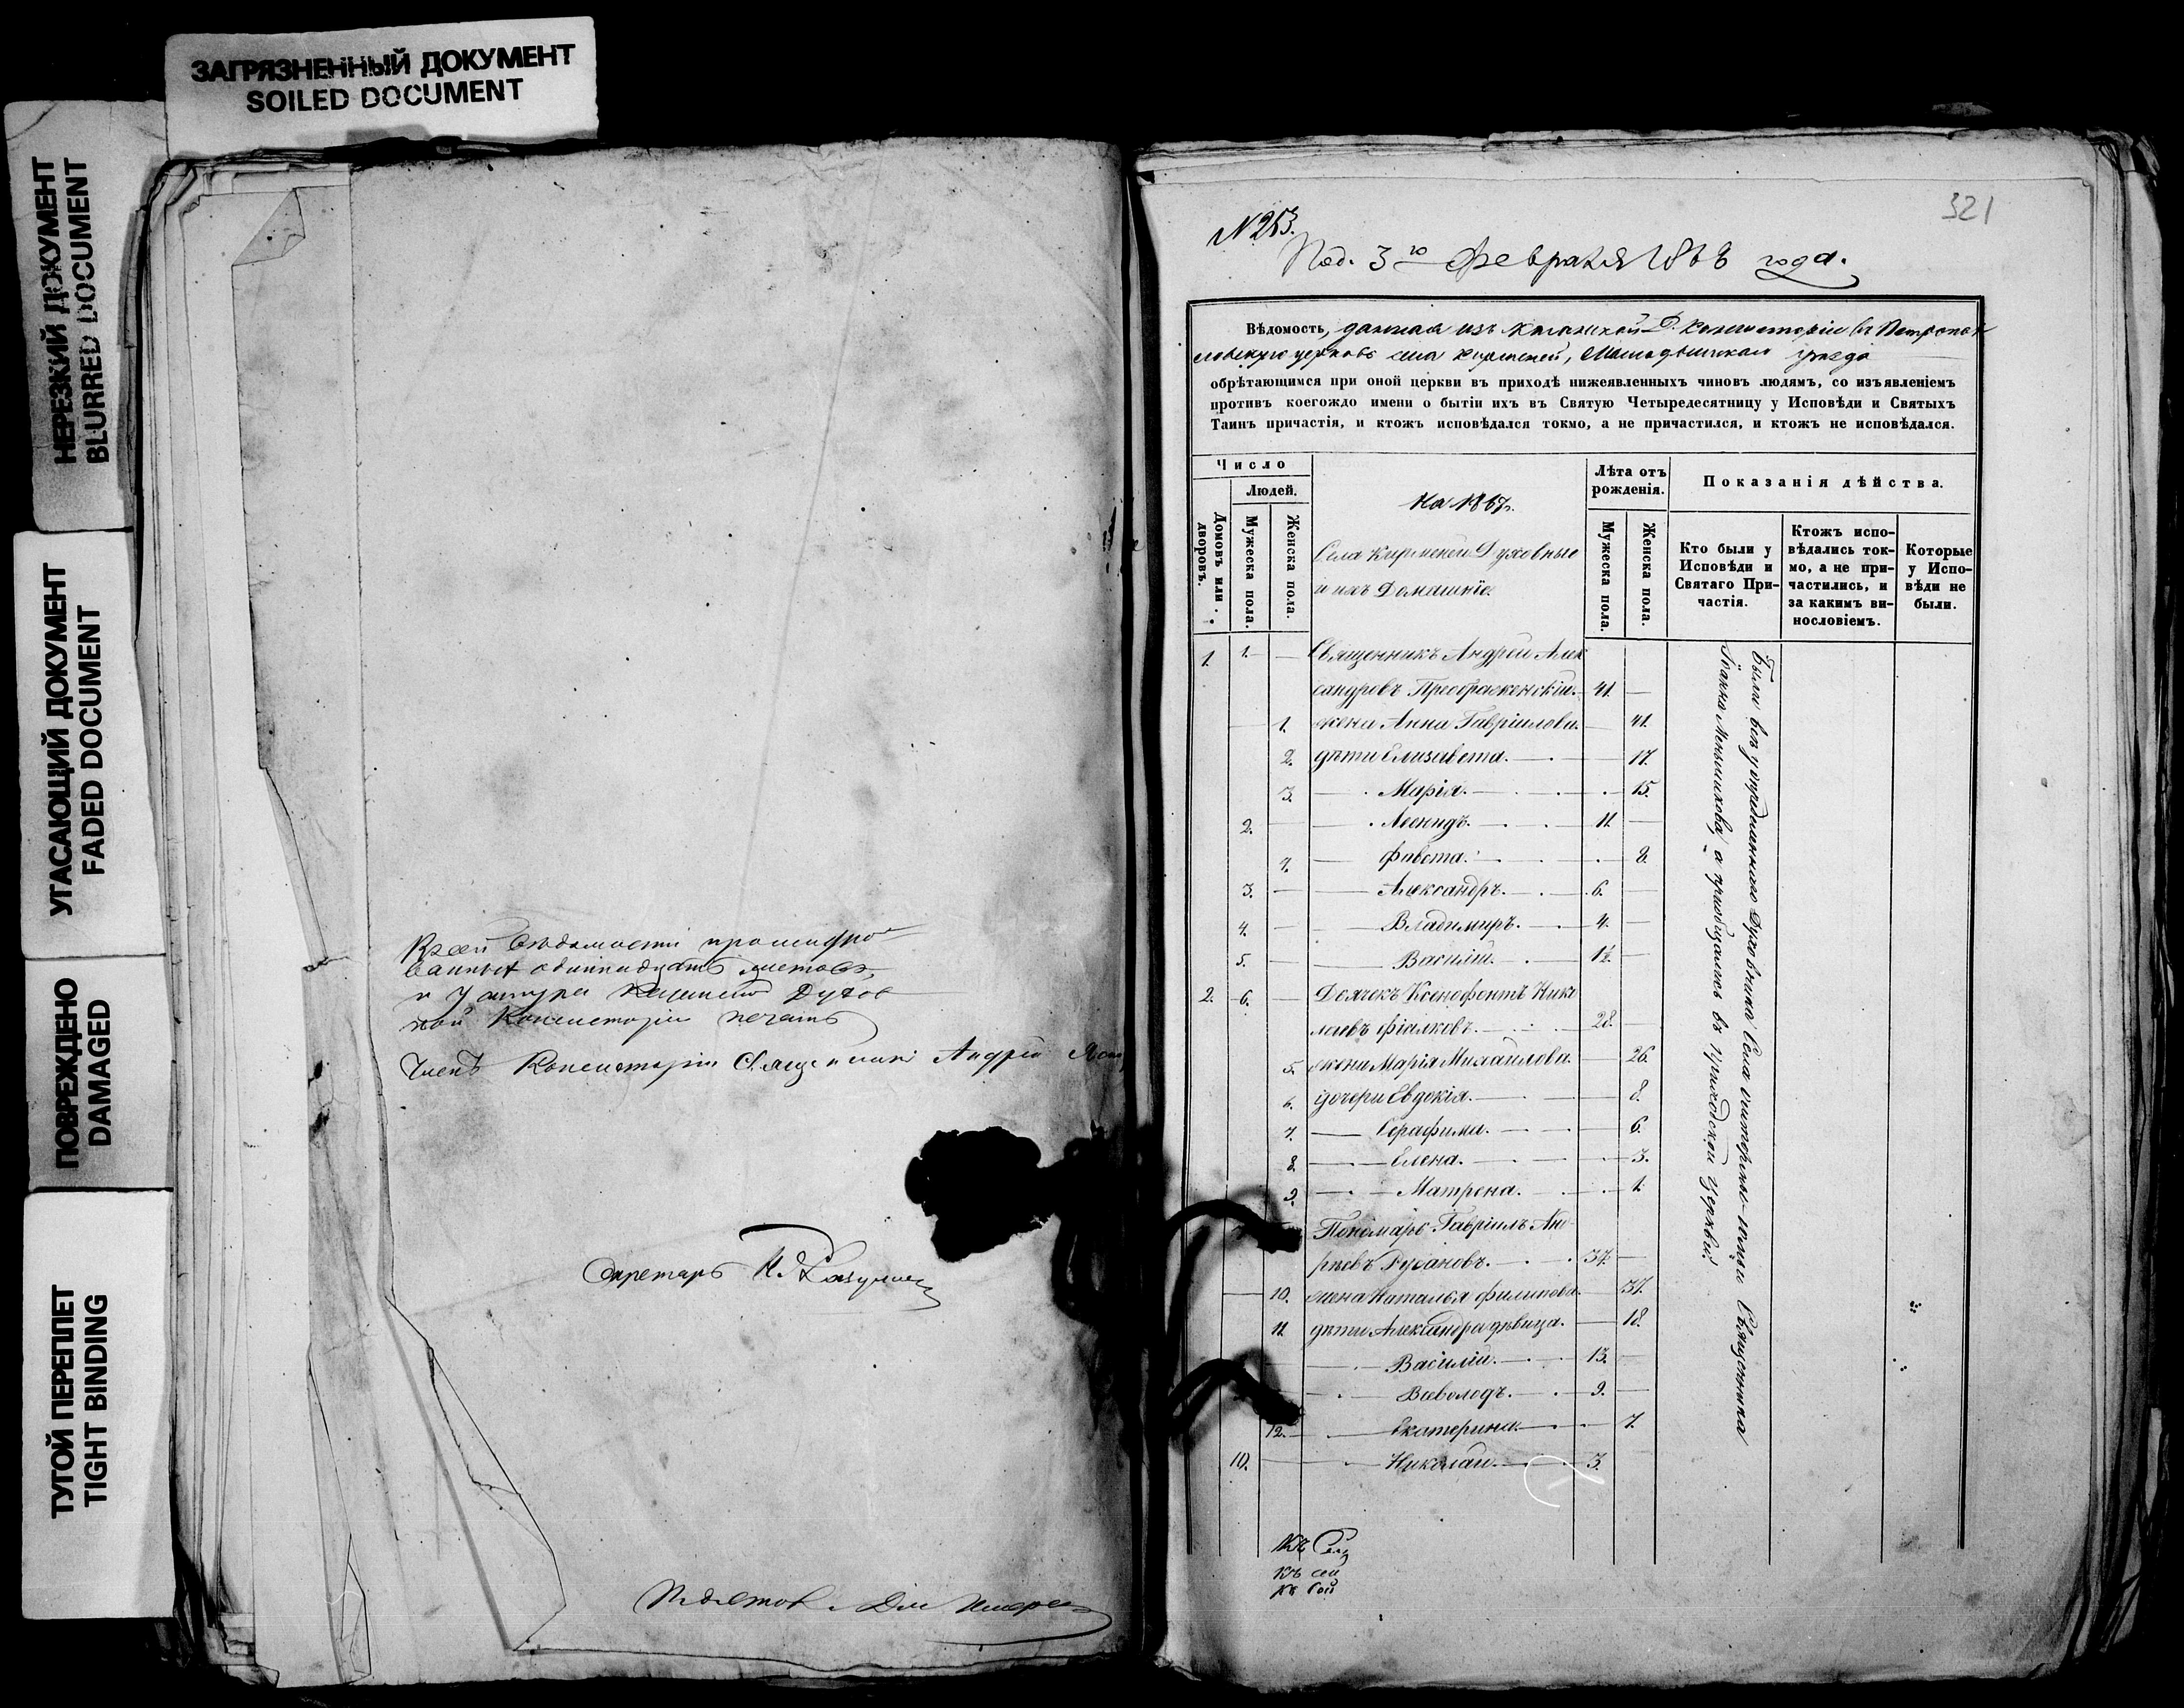 ЗАГРЯЗНЕННЫЙ ДОКУМЕНТ
SOILED DOCUMENT
НЕРЕЗКИЙ ДОКУМЕНТ
BLURRED DOCUMENT
УГАСАЮЩИЙ ДОКУМЕНТ
FADED DOCUMENT
ПОВРЕЖДЕНО
DAMAGED
ТУГОЙ ПЕРЕПЛЕТ
TIGHT BINDING
Къ сей ведомости прошнуро-
ванных одиннадцать листовъ,
и у шнура Казанской Духов
ной Консисторіи печать
Членъ Консисторіи Священникъ Андрей
Секретарь
321
N 253.
Под. 3го февраля 1868 года.
Вѣдомость, данная изъ Казанской Д. Консисторіи въ Петропав
ловскую церковь села Кирменей, Мамадышскаго уѣзда
обрѣтающимся при оной церкви въ приходѣ нижеявленныхъ чиновъ людямъ, со изъявленіемъ
противъ коегождо имени о бытіи ихъ въ Святую Четыредесятницу у Исповѣди и Святыхъ
Таинъ причастія, и ктожъ исповѣдался токмо, а не причастился, и ктожъ не исповѣдался.
Число
Людей.
Домовъ или дворовъ.
Мужеска пола.
Женска пола.
На 1867 г.
Села Кирменей Духовные
и ихъ Домашніе
Лѣта отъ рожденія.
Мужеска пола.
Женска пола.
Показанія дѣйства.
Кто были у Исповѣди и Святаго При-частія.
Ктожъ испо-вѣдались ток-мо, а не при-частились, и за какимъ ви-нословіемъ.
Которые у Испо-вѣди не были.
1. 1. Священникъ Андрей Алек
сандровъ Преображенскій. 41.
1. жена Анна Гавріилова. 41.
2. дѣти Елизавета. 17.
3. Марія. 15.
2. Леонидъ. 11.
4. Фавста. 8.
3. Александръ. 6.
4. Владимиръ. 4.
5. Василій. 1½.
2. 6. Дьячекъ Ксенофонтъ Нико
лаевъ Фіалковъ. 28.
5. жена Марія Михаилова. 26.
6. дочери Евдокія. 8.
7. Серафима. 6.
8. Елена. 3.
9. Матрона. 1.
Пономарь Гавріилъ Анд
реевъ Русановъ. 37.
10. жена Наталья Филипова. 37.
11. дѣти Александра дѣвица. 18.
Василій. 13.
Всеволодъ. 9.
12. Екатерина. 7.
10. Николай. 3.
Были всѣ у опредѣленнаго Духовника Села Священника
Іоанна Меньшикова, а приобщались въ Приходской Церкви.
къ сей